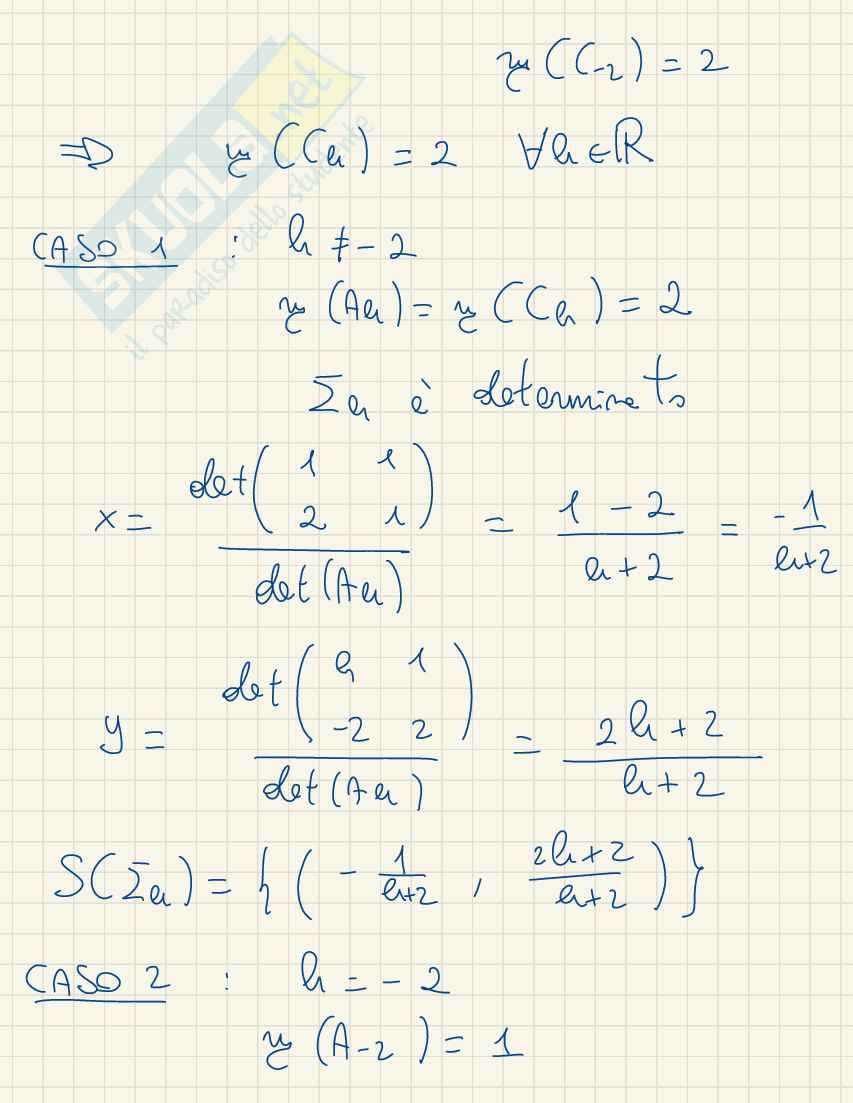 rg (C₋₂) = 2
⇒ rg (Cₕ) = 2 ∀h ∈ ℝ
CASO 1 : h ≠ -2
rg (Aₕ) = rg (Cₕ) = 2
Σₕ è determinato
x = det( 1 1 ; 2 1 ) / det(Aₕ) = (1 - 2) / (h + 2) = -1 / (h+2)
y = det( h 1 ; -2 2 ) / det(Aₕ) = (2h + 2) / (h + 2)
S(Σₕ) = { ( - 1/(h+2) , (2h+2)/(h+2) ) }
CASO 2 : h = - 2
rg (A₋₂) = 1
SKUOLA.net
il paradiso dello studente